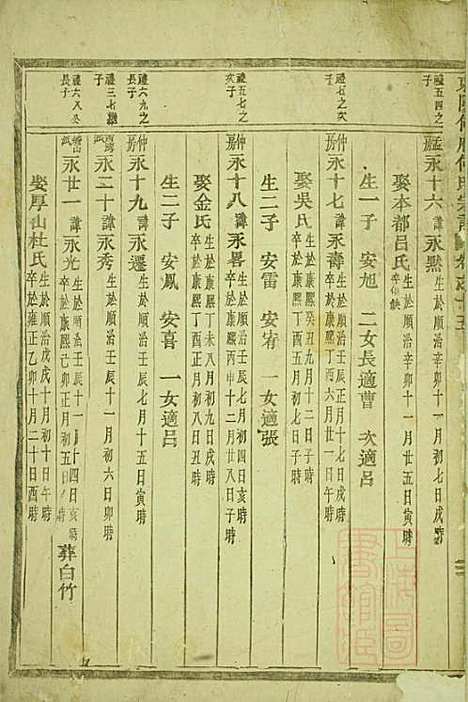 禮五四之子
孟房永十六諱永煕生於順治辛卯十一月初七日戌時
娶本都吕氏生於順治辛卯十一月廿五日亥時
卒俱缺
生一子 安旭 二女長適曹 次適吕
禮七石之次子
仲房永十七諱永壽生於順治壬辰正月十七日戌時
卒於康熙丁酉六月廿一日子時
娶吳氏生於康熙癸丑九月十二日子時
卒於康熙丁酉八月初一日酉時
生二子 安雷 安宥 一女適張
禮五七之次子
仲房永十八諱永畧生於順治壬辰七月初四日亥時
卒於康熙丙申十二月廿八日子時
娶金氏生於康熙丁未八月初九日戌時
卒於康熙丁酉正月初八日丑時
生二子 安鳳 安喜 一女適吕
禮六九之子
仲房永十九諱永遷生於順治壬辰七月十五日寅時
禮三七繼子
永二十諱永秀生於順治壬辰十一月初六日卯時
禮六八公長子
永廿一諱永光生於順治壬辰十一月十四日亥時
卒於康熙己卯正月初五日 時
娶厚山杜氏生於 九月初十日寅時
卒於雍正乙卯十月二十日酉時
葬白竹